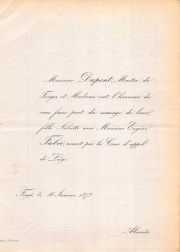 Monsieur Dupont, Ministre de
Forges, et Madame ont l'honneur de
vous faire part du mariage de leur
fille Juliette avec Monsieur Eugène
Fabri, avocat près la Cour d'appel
de Liège.
le 16 Janvier 1872.